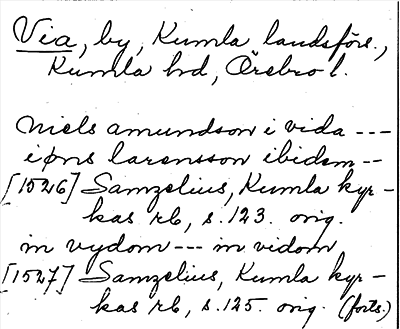 Via, by, Kumla landsförs.,
Kumla hd, Örebro l.
Niels amundson i vida ---
i øns larensson ibidem --
[1526] Samzelius, Kumla kyr-
kas rb, s. 123. orig.
in vydom --- in vidom
[1527] Samzelius, Kumla kyr-
kas rb, s. 125. orig. (forts.)